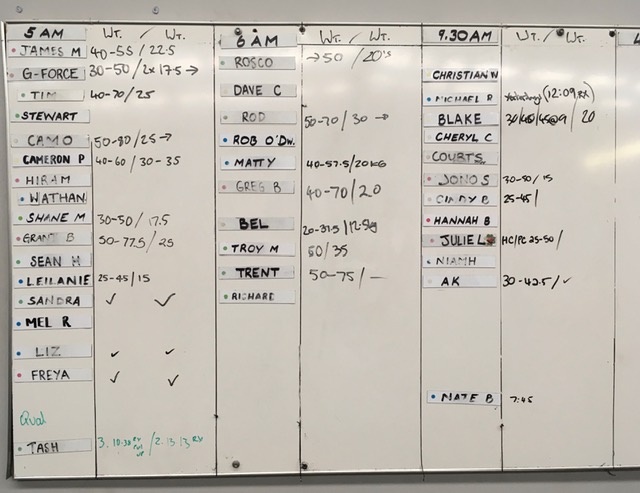 5 AM WT. / WT.
JAMES M 40-55 / 22.5
G-FORCE 30-50 / 2x 17.5 →
TIM 40-70 / 25
STEWART
CAMO 50-80 / 25 →
CAMERON P 40-60 / 30-35
HIRAM
NATHAN
SHANE M 30-50 / 17.5
GRANT B 50-77.5 / 25
SEAN H
LEILANIE 25-45 / 15
SANDRA ✓ ✓
MEL R
LIZ ✓ ✓
FREYA ✓ ✓
Qual
TASH 3. 10:30 / 2. 13 13 RX
6 AM WT. / WT.
ROSCO →50 / 20's
DAVE C
ROD 50-70 / 30 →
ROB O'DW.
MATTY 40-57.5 / 20KG
GREG B 40-70 / 20
BEL 20-37.5 / 12.5kg
TROY M 50 / 35
TRENT 50-75 / —
RICHARD
9.30AM WT. / WT.
CHRISTIAN W
MICHAEL R (12:09 RX)
BLAKE 30/40/45@9 / 20
CHERYL C
COURTS.
JONO S 30-50 / 15
CINDY B 25-45 /
HANNAH B
JULIE L HC/PC 25-50 /
NIAMH
AK 30-42.5 / ✓
NATE B 7:45